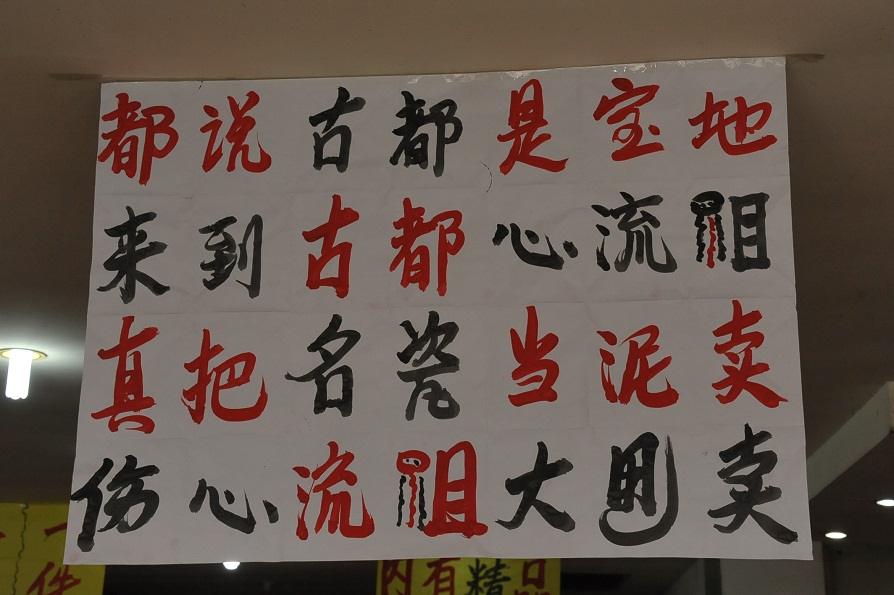 都说古都是宝地
来到古都心流泪
真把名瓷当泥卖
伤心流泪大甩卖
一件
内有精品